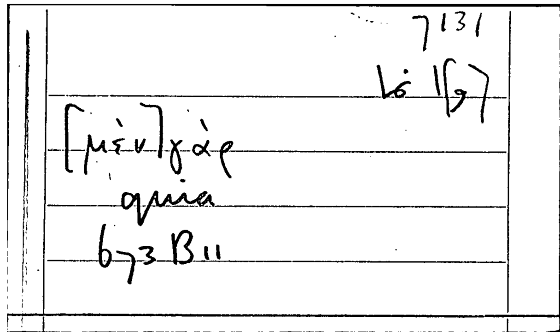 7131
[μὲν] γὰρ
quia
673 B 11